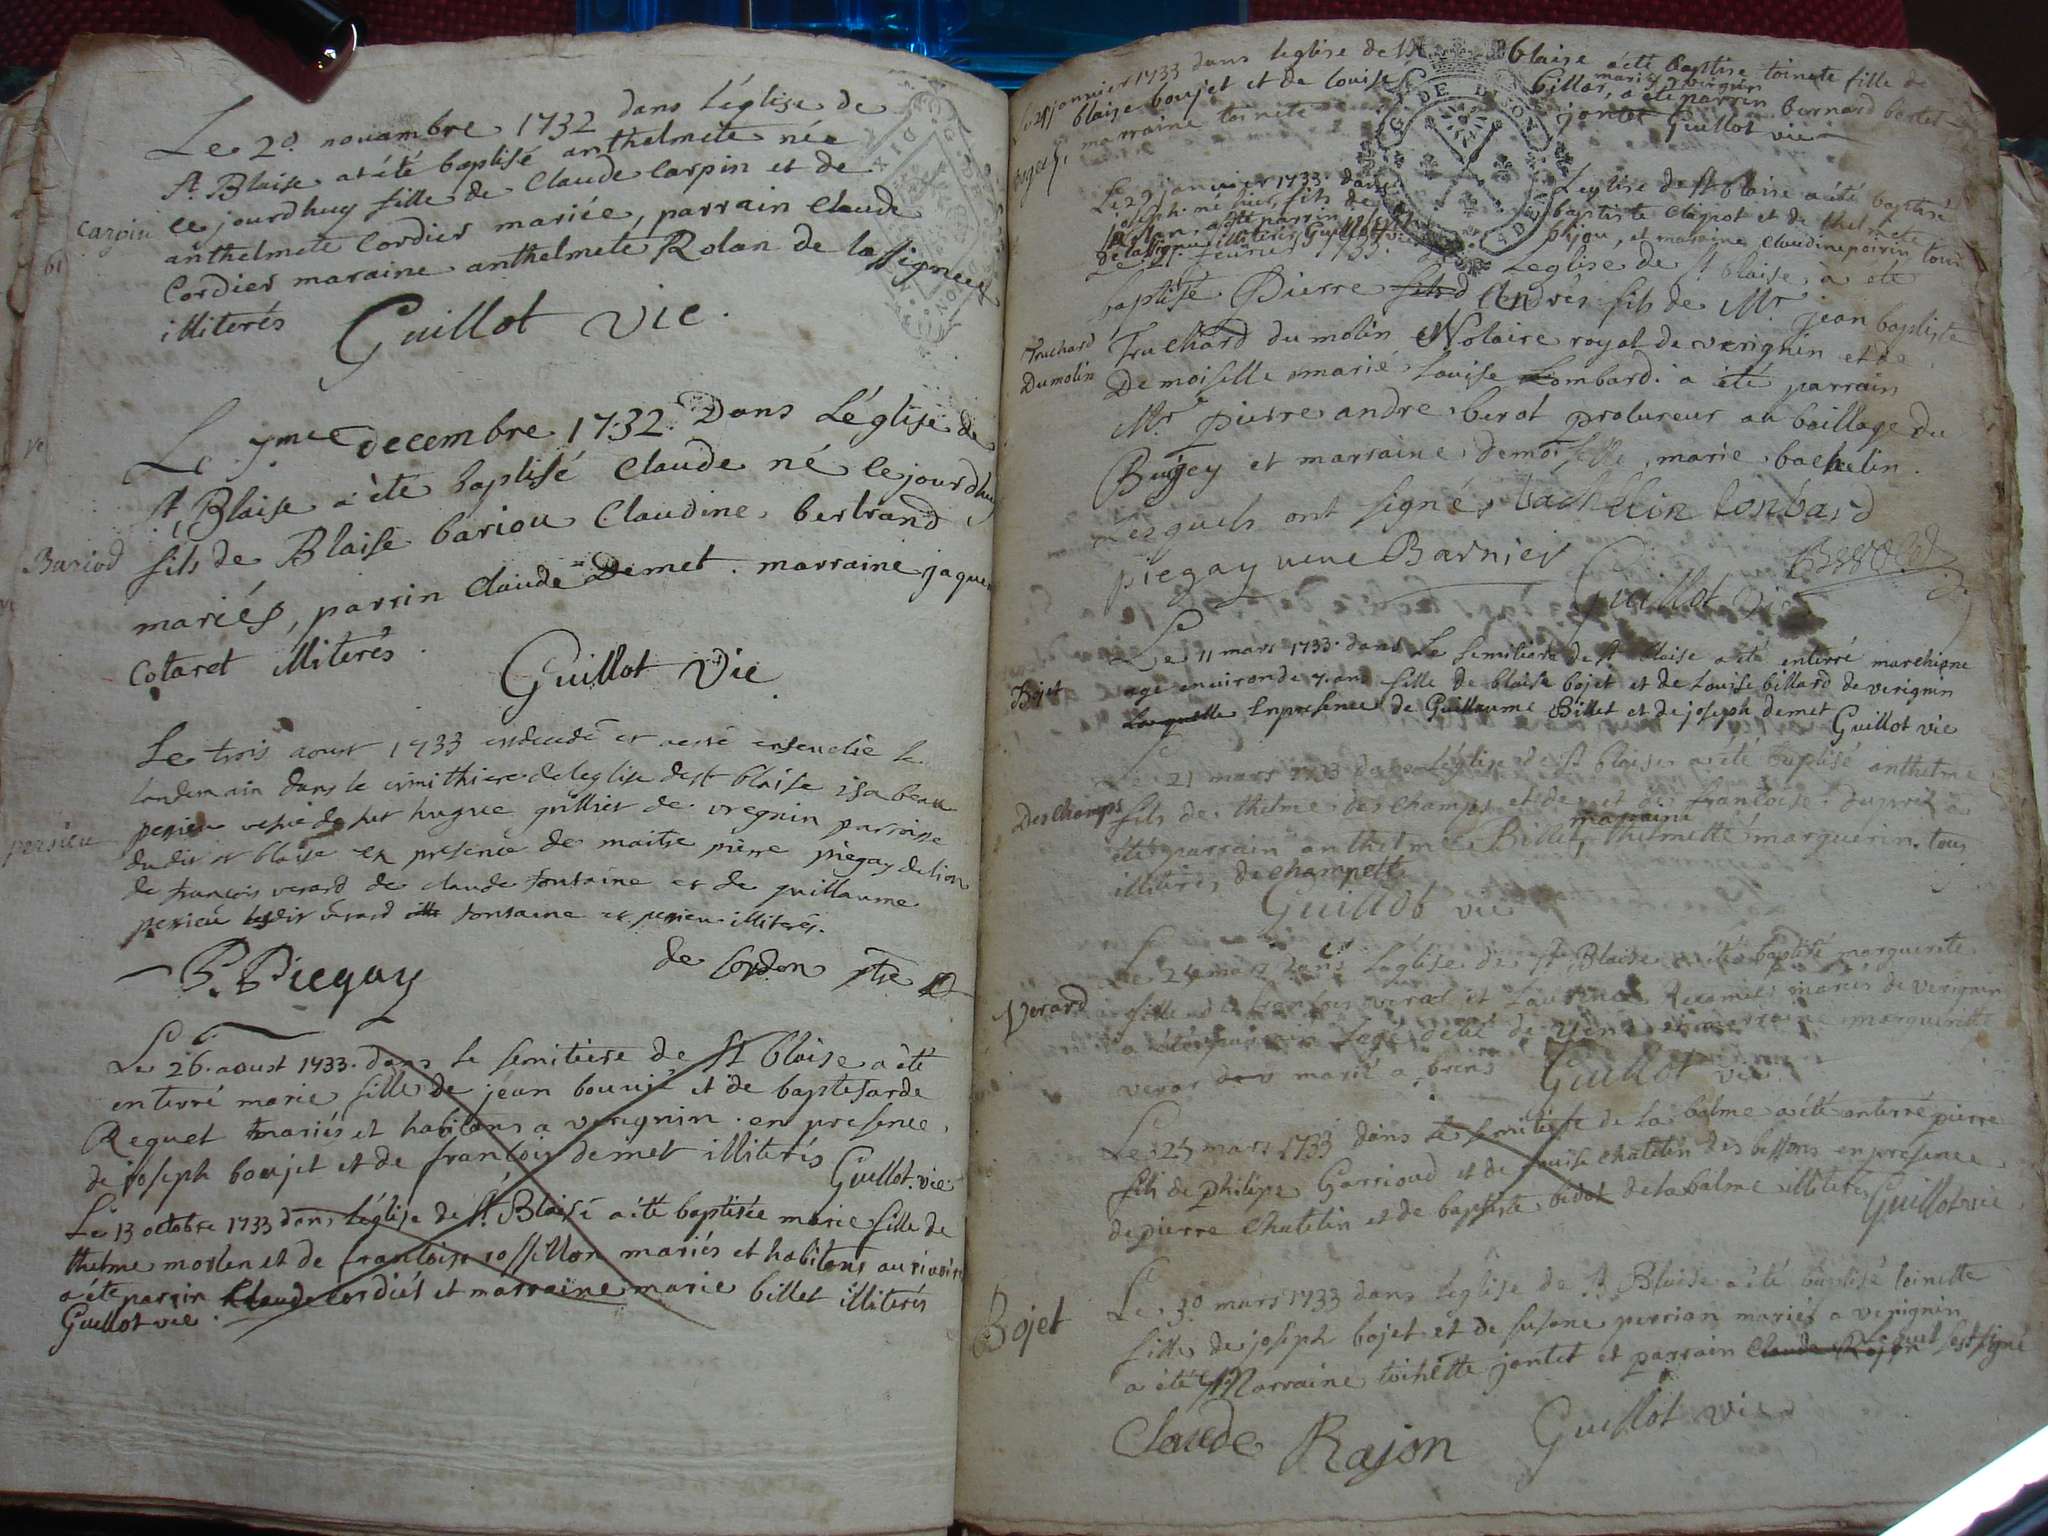 Le 20 novambre 1732 dans L'église de
St. Blaise at été baptisé anthelmete née
Carpin
le jourdhuy fille de Claude Carpin et de
anthelmete Cordier mariée, parrain Claude
Cordier maraine anthelmete Rolan de
illiterés
Guillot vie.
Le 7me decembre 1732 Dans L'église de
St. Blaise a été baptisé Claude né le jourdhuy
Bariod
fils de Blaise bariou Claudine bertrand
mariés, parrin Claude Demet. marraine jaque
Cotaret illiterés.
Guillot Vie
Le trois aoust 1733 est decedé et a esté ensevelie le
landemain dans le cimithiere de leglise de st blaise isabeau
persieu
perrieu vefve de feu hugue grillier de vregnin parroisse
du dit st blaise en presence de maitre pierre piegay de lion
de françois verard de claude fontaine et de guillaume
perrieu verard fontaine et perrieu illiterés.
P. Piegay
de Cordon ptre
Le 26 aoust 1733 dans le semitiere de St blaise a été
enterré marie fille de jean bouvié et de
Requet mariés et habitans a verignin. en presence
de joseph boujet et de francois demet illiterés Guillot vie
Le 13 octobre 1733 dans l'église de St. Blaise a été baptisée marie fille de
thelme morlen et de francoise rossillon mariés et habitans au
a été parrin Claude Cordiér et marraine marie billet illiterés
Guillot vie.
janvier 1733 dans leglise de St blaise a été baptise toinete fille de
blaise boujet et de louise billar, mariés a verignin
a été parrin bernard
marraine toinete jontet Guillot vie
Le 29 janvier 1733 dans Leglise de St blaise a été baptisé
joseph né hier, fils de baptiste clignot et de thelmete
a été parrin et maraine Claudine poirin tous
illiterés Guillot vie
Le fevrier 1733 Leglise de St blaise a été
baptisé Pierre André fils de Mr jean baptiste
Truchard
Dumolin
Truchard du molin Notaire royal de verignin et de
Demoiselle marié Louise Lombard. a été parrain
Mr pierre andre berot procureur au baillage du
Bugey et marraine demoiselle marie bachelin.
lesquels ont signé bachellin lonbard
piegay Barnier
Guillot vie
Le 11 mars 1733 dans Le semitiere de St blaise a été enterré
Bojet
agé environ de 7 ans fille de blaise bojet et de Louise billard de verignin
Laquelle en presence de Guillaume Billet et de joseph demet Guillot vie
Le 21 mars 1733 dans Léglise de St Blaise a été baptisé anthelme
Des Champs
fils de thelme des champs et de francoise
été parrain anthelme Billet, maraine thelmette marguerin tous
illiterés de champette
Guillot vie
Le mars dans Léglise de St Blaise a été baptisé marguerite
Verard
fille de francois verar et Laurence mariés de verignin
a été marraine marguerite
verar marié a brens Guillot vie
Le 25 mars 1733 dans le semitiere de la balme a été enterré pierre
fils de philipe Garrioud et de louise chatelin des bessons en presence
de pierre chatelin et de baptiste bidot de la balme illiterés Guillot vie
Le 30 mars 1733 dans Léglise de St Blaise a été baptisé toinette
Bojet
fille de joseph bojet et de susane perrian mariés a verignin
a été Marraine toinette jontet et parrain Claude Rajon Lequel sest signé
Claude Rajon Guillot vie